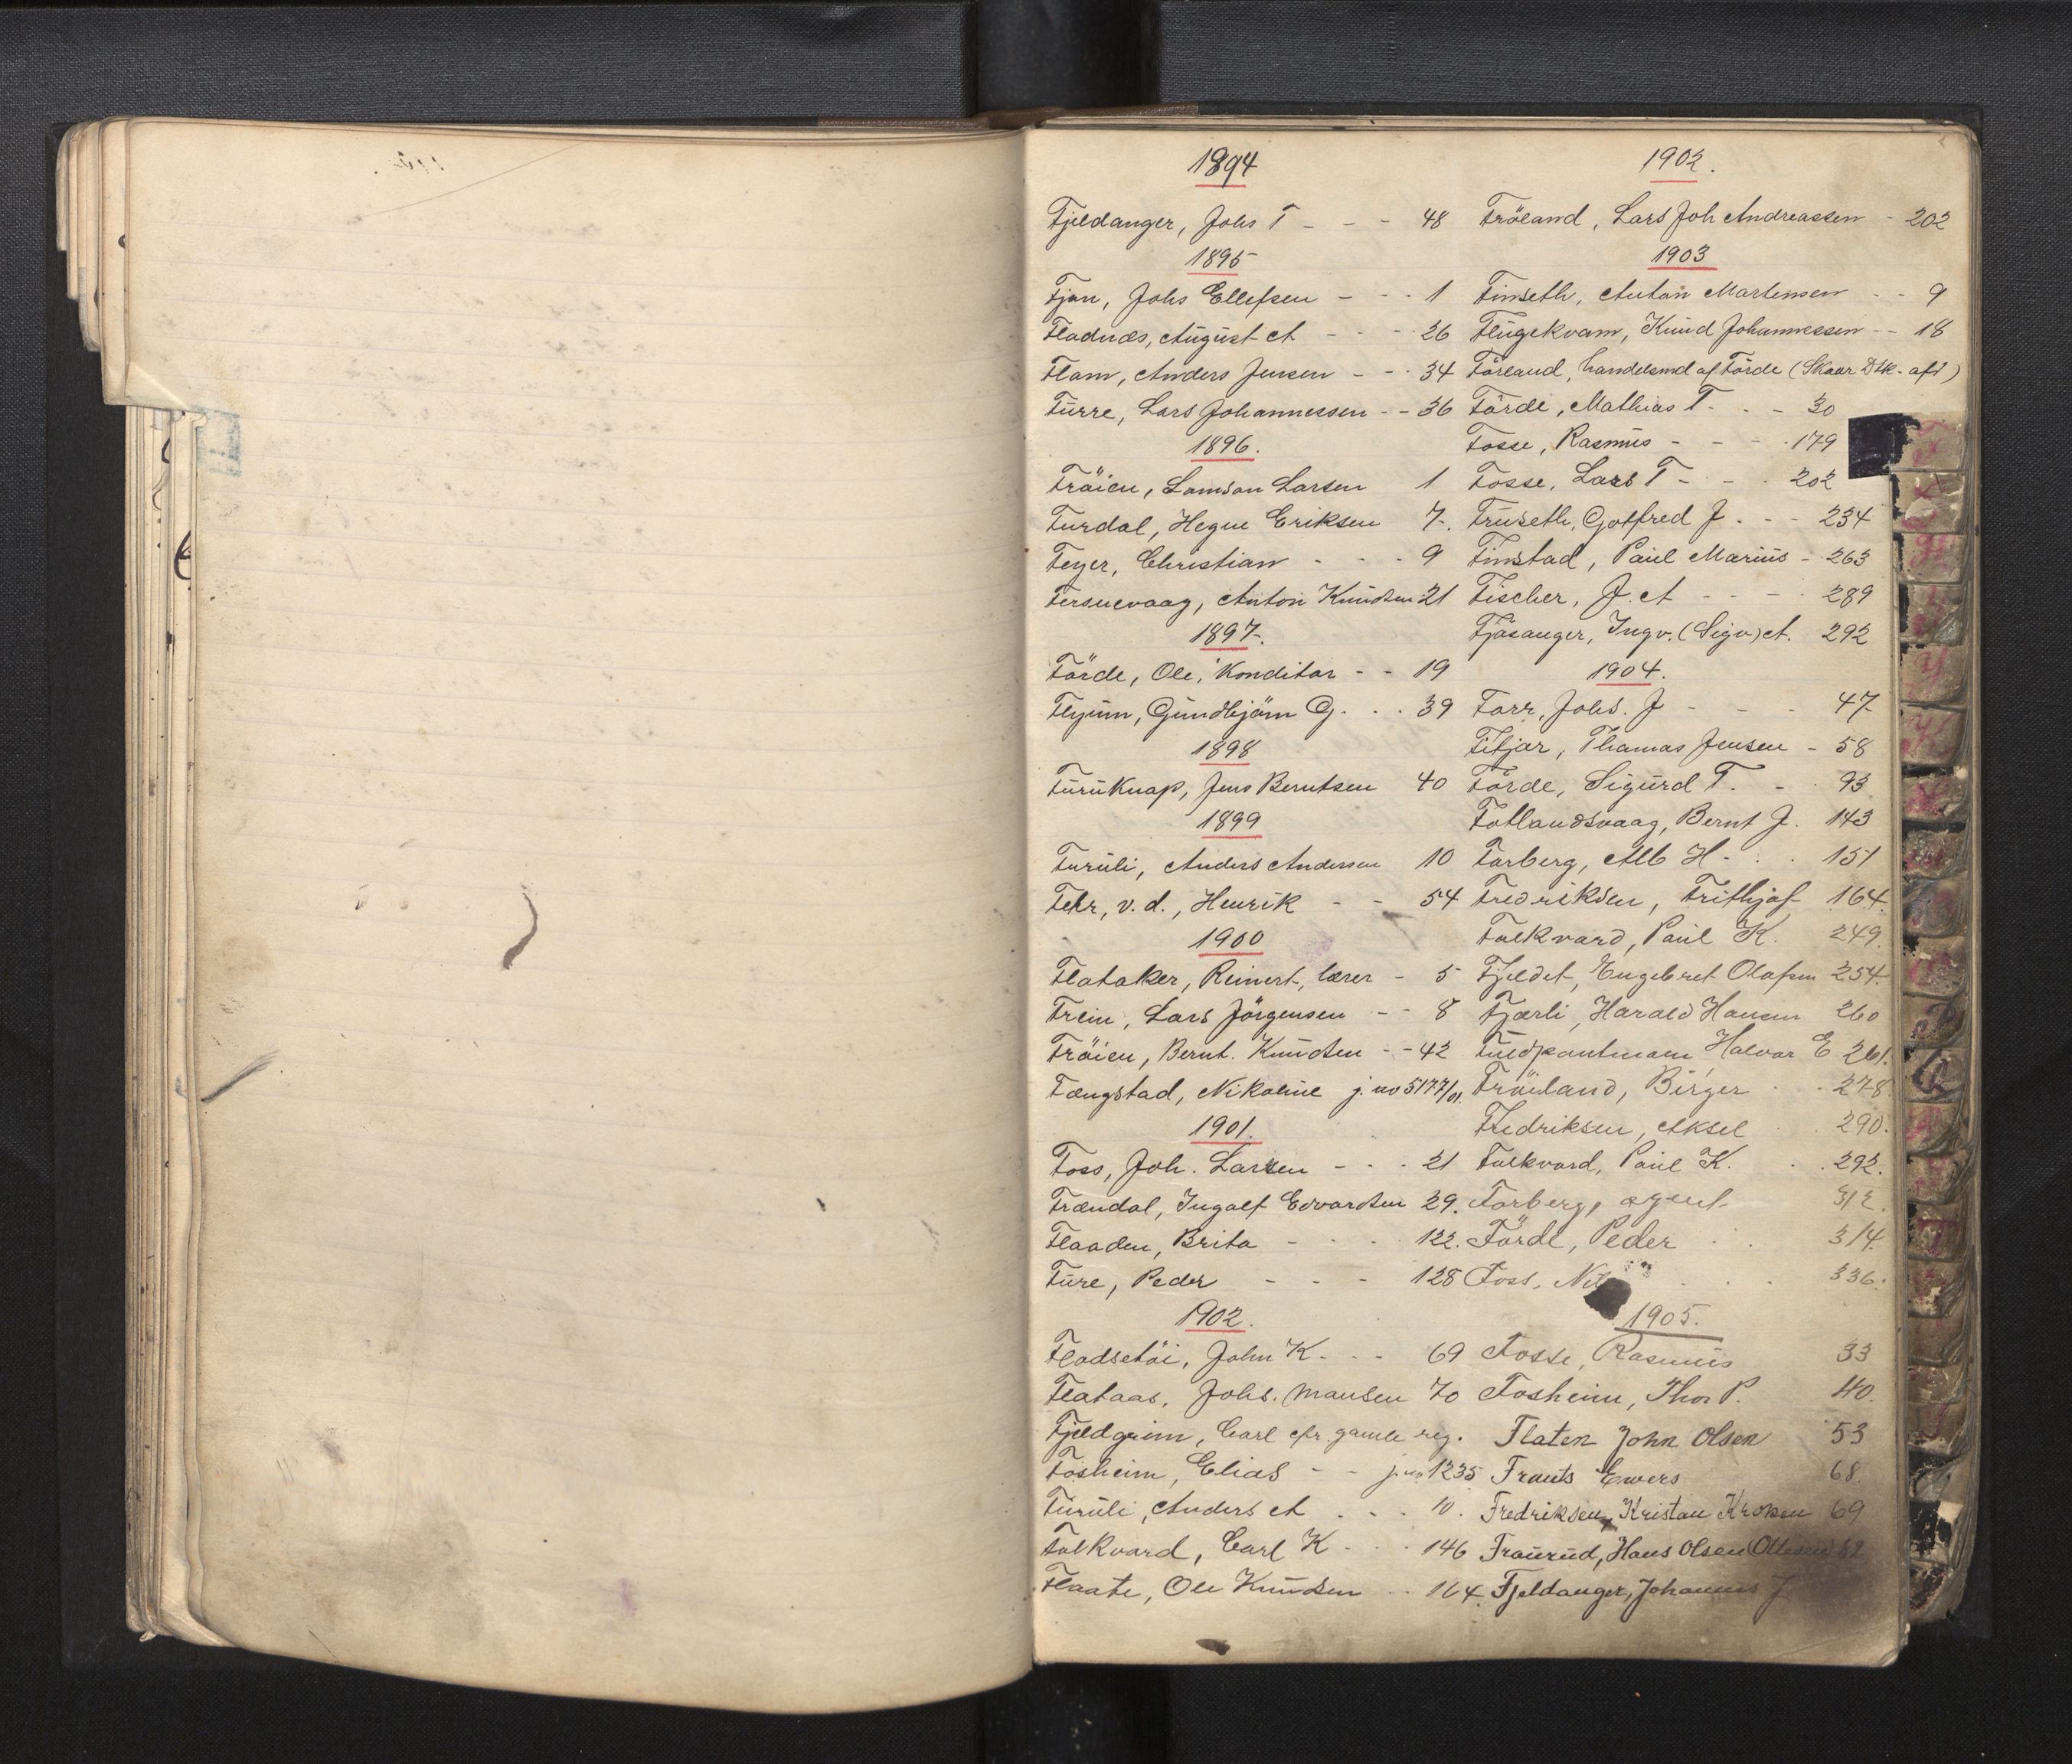 1894
Fjeldanger, Johs T - - - 48
1895
Fjon, Johs Ellefsen - - - 1
Fladnæs, August A - - - 26
Flam, Anders Jensen - - - 34
Furre, Lars Johannessen - - 36
1896.
Fröien, Samson Larsen 1
Furdal, Hegne Eriksen 7.
Feyer, Christian - - - 9
Fersnevaag, Anton Knudsen 21
1897.
Förde, Ole, Konditor - - 19
Flyum, Gundbjörn G. . . 39
1898
Furuknap, Jens Berntsen 40
1899
Furuli, Anders Andersen 10
Fehr, v. d., Henrik - - 54
1900
Flataker, Reinert, lærer - 5
Frein, Lars Jörgensen - - 8
Fröien, Bernt. Knudsen - - 42
Fængstad, Nikoline j. no 5177/01.
1901.
Foss, Joh. Larsen - - - 21
Frændal, Ingolf Edvardsen 29.
Flaaden, Brita - - - 122.
Fure, Peder - - - 128
1902.
Flodsetöi, John K. - - 69
Flataas, Johs. Monsen 70
Fjeldgrim, Carl cfr. gamle reg.
Fosheim, Elias - - j. no 1235
Furuli, Anders A . . . 10.
Falkvard, Carl K - - - 146
Flaate, Ole Knudsen - - 164.
1902.
Fröland, Lars Joh Andreassen - 202
1903
Finseth, Anton Martensen - - 9
Flugekvam, Knud Johannessen - - 18
Förland, handelsmd af Förde (Skaar Dtk. aft)
Förde, Mathias T. - - 30
Fosse, Rasmus - - - - 179
Fosse, Lars T - - - 202
Fruseth, Gotfred J. - - 234
Finstad, Paul Marius - 263
Fischer, J. A - - - - 289
Fjösanger, Ingv. (Sigv) A. 292
1904.
Farr, Johs. J - - - 47
Fitjar, Thomas Jensen - 58
Förde, Sigurd T. - - 93
Fotlandsvaag, Bernt J. 143
Farberg, Alb H - . . 151
Fredriksen, Frithjof 164.
Falkvard, Paul K. 249.
Fjeldet, Engebret Olafsen 254.
Fjærli, Harald Hansen 260
Halvor E 261.
Fröiland, Birger . . 278
Fredriksen, Aksel . . 290.
Falkvard, Paul K. . . 292.
Farberg, agent. 312.
Förde, Peder . . 314.
Foss, . . . 336.
1905.
Fosse, Rasmus 33
Fosheim, Thor P. 40.
Flaten John Olsen 53
Frants Ewers 68.
Fredriksen, Kristan Kroken 69
Fraurud, Hans Olsen (Ottesen) 82
Fjeldanger, Johannes J